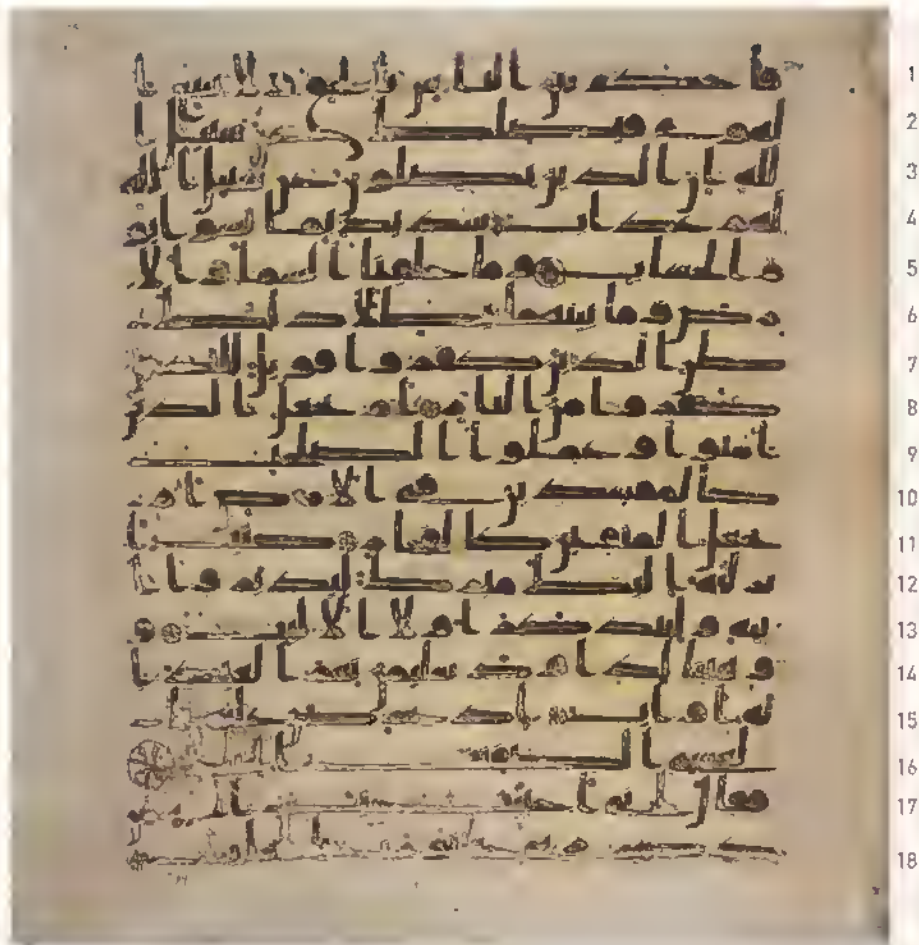 فاحكم بين الناس بالحق ولا تتبع ا 1
لهوى فيضلك عن سبيل ا 2
لله ان الذين يضلون عن سبيل الله 3
لهم عذاب شديد بما نسوا يو 4
م الحساب وما خلقنا السما والا 5
رض وما بينهما بطلا ذلك ظن 6
الذين كفروا فويل للذين 7
كفروا من النار ام نجعل الذين 8
امنوا وعملوا الصلحت 9
كالمفسدين في الارض ام 10
نجعل المتقين كالفجار كتب ا 11
نزلنه اليك مبرك ليدبروا ا 12
يته وليتذكر اولوا الالبب و 13
وهبنا لداود سليمن نعم العبد ا 14
نه اواب اذ عرض عليه با 15
لعشي الصفنت الجياد 16
فقال اني احببت حب الخير 17
18